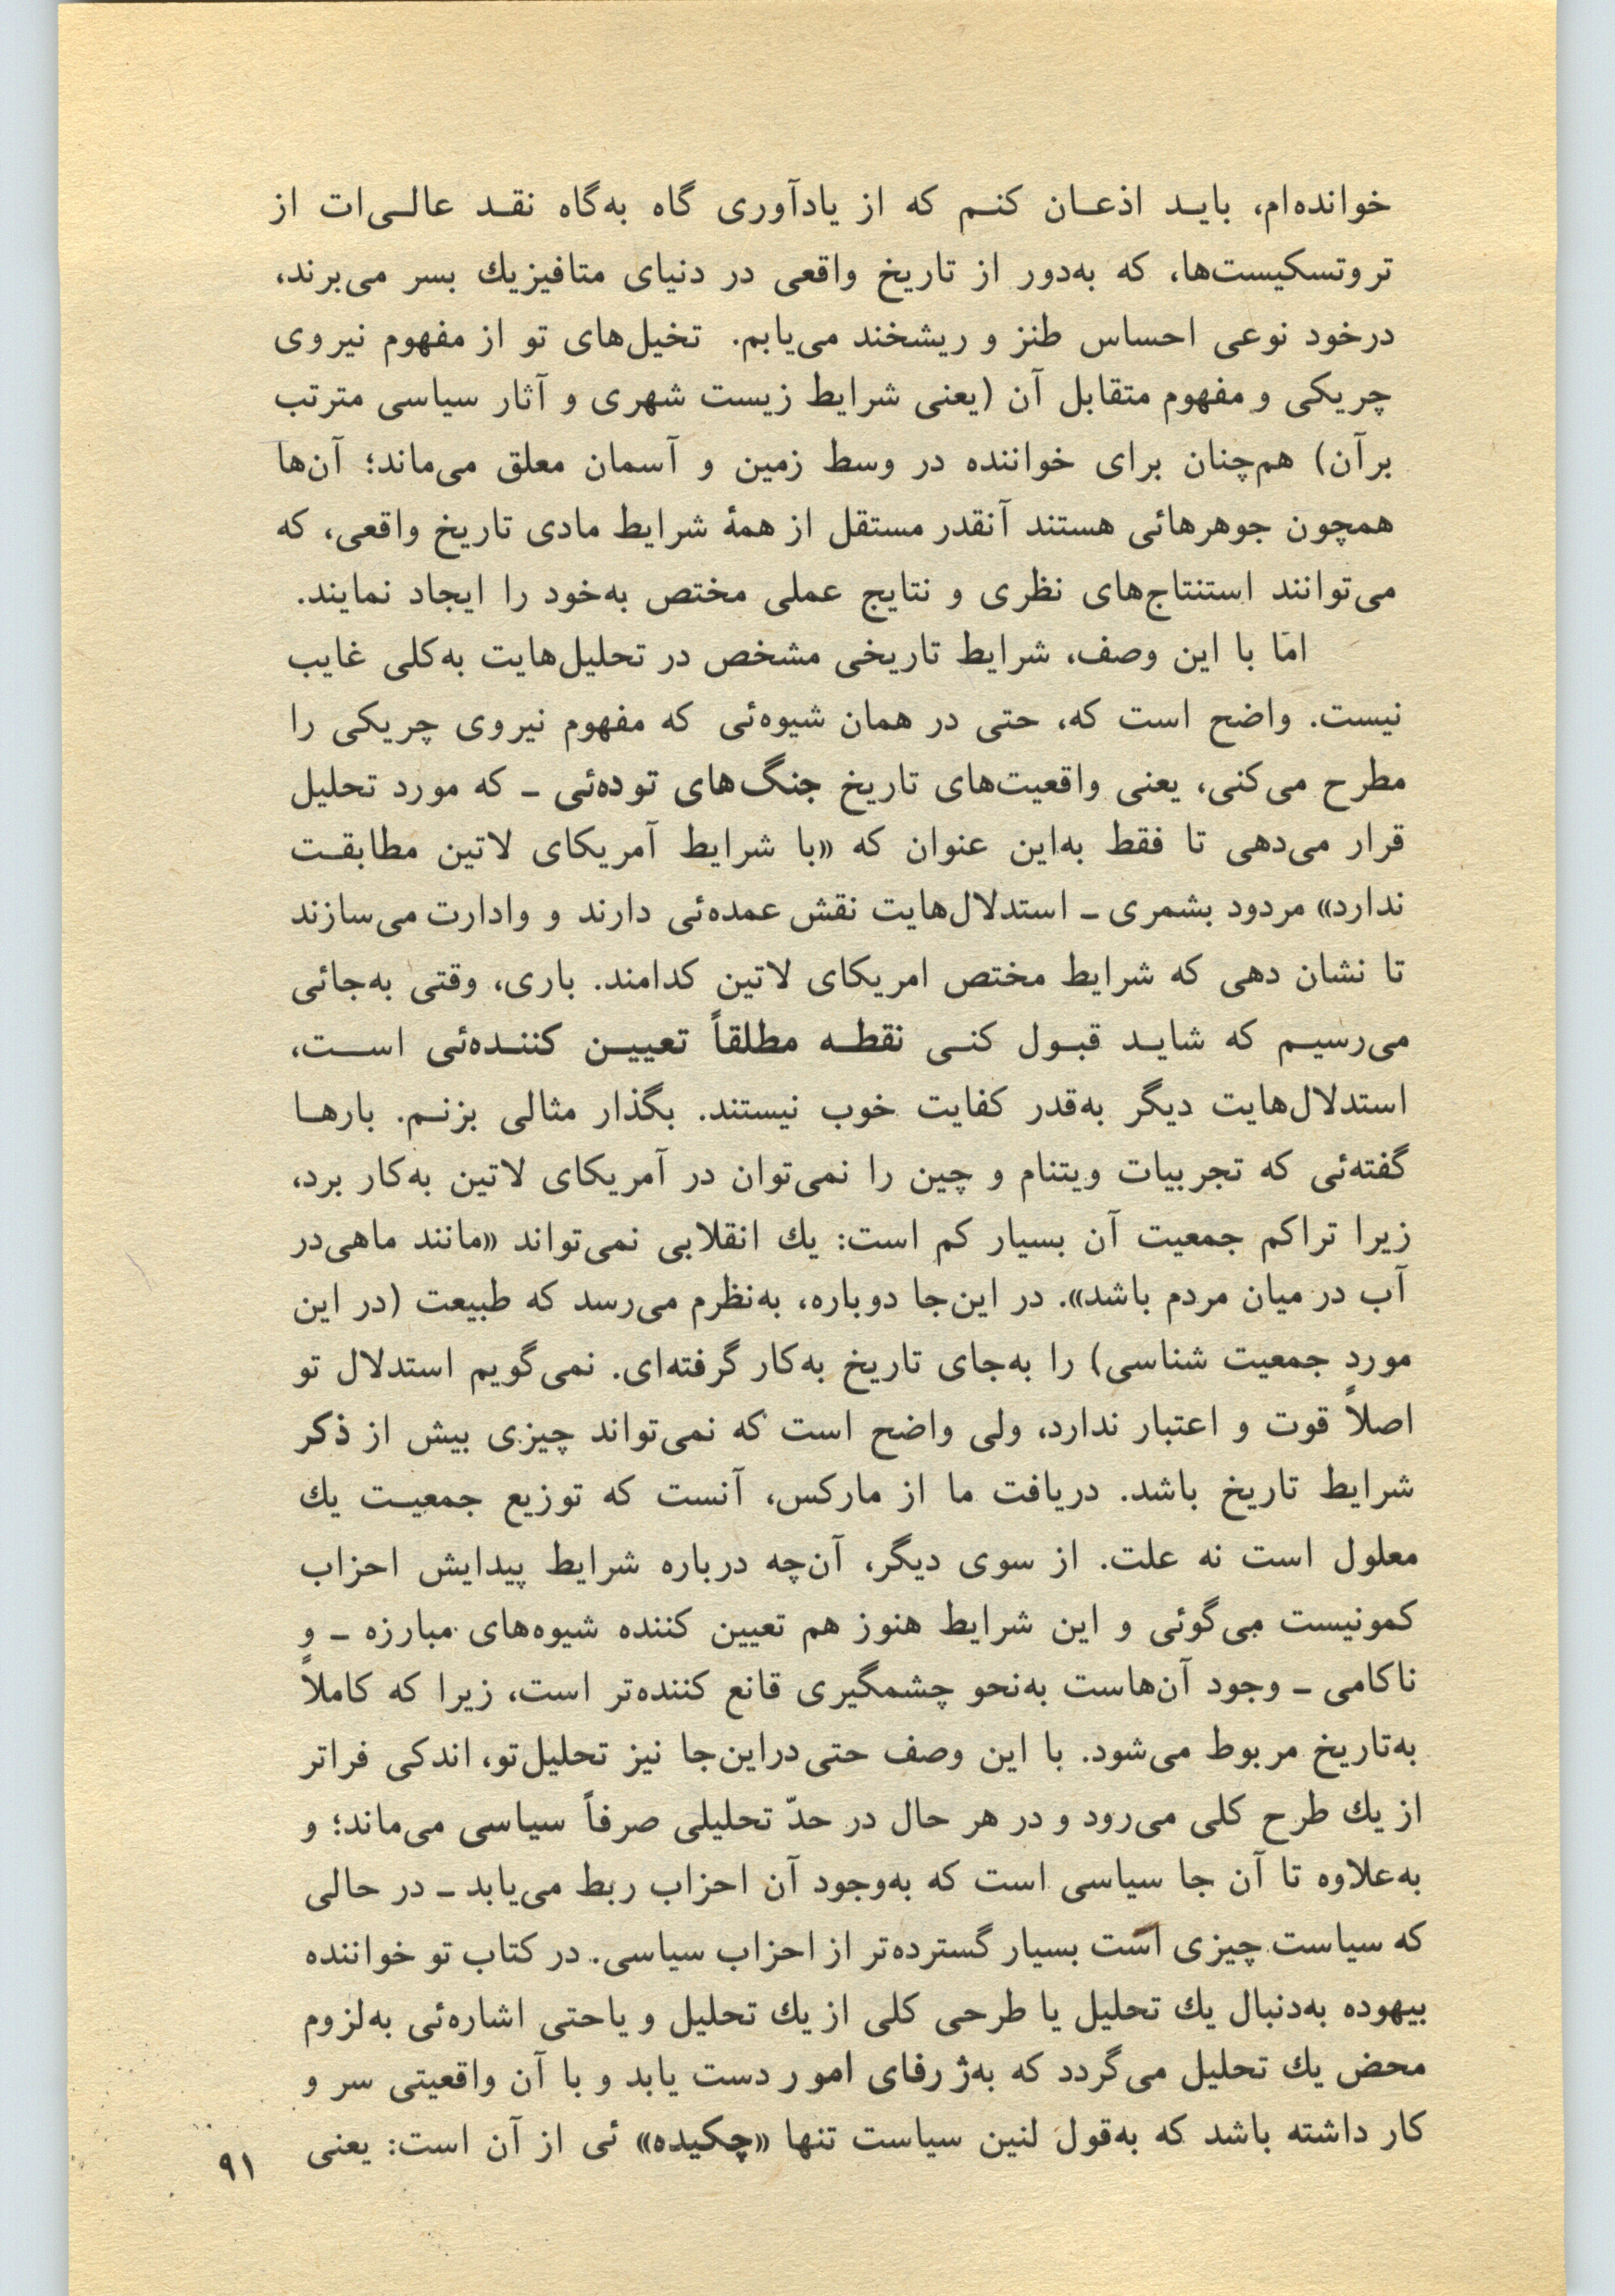 خوانده‌ام، بایـد اذعـان کنـم که از یادآوری گاه به‌گاه نقـد عالـی‌ات از
تروتسکیست‌ها، که به‌دور از تاریخ واقعی در دنیای متافیزیك بسر می‌برند،
درخود نوعی احساس طنز و ریشخند می‌یابم. تخیل‌های تو از مفهوم نیروی
چریکی و مفهوم متقابل آن (یعنی شرایط زیست شهری و آثار سیاسی مترتب
برآن) هم‌چنان برای خواننده در وسط زمین و آسمان معلق می‌ماند؛ آن‌ها
همچون جوهرهائی هستند آنقدر مستقل از همهٔ شرایط مادی تاریخ واقعی، که
می‌توانند استنتاج‌های نظری و نتایج عملی مختص به‌خود را ایجاد نمایند.
امّا با این وصف، شرایط تاریخی مشخص در تحلیل‌هایت به‌کلی غایب
نیست. واضح است که، حتی در همان شیوه‌ئی که مفهوم نیروی چریکی را
مطرح می‌کنی، یعنی واقعیت‌های تاریخ جنگ‌های توده‌ئی ـ که مورد تحلیل
قرار می‌دهی تا فقط به‌این عنوان که «با شرایط آمریکای لاتین مطابقـت
ندارد» مردود بشمری ـ استدلال‌هایت نقش عمده‌ئی دارند و وادارت می‌سازند
تا نشان دهی که شرایط مختص امریکای لاتین کدامند. باری، وقتی به‌جائی
می‌رسیـم که شایـد قبـول کنـی نقطـه مطلقاً تعییـن کننـده‌ئی اسـت،
استدلال‌هایت دیگر به‌قدر کفایت خوب نیستند. بگذار مثالی بزنـم. بارهـا
گفته‌ئی که تجربیات ویتنام و چین را نمی‌توان در آمریکای لاتین به‌کار برد،
زیرا تراکم جمعیت آن بسیار کم است: یك انقلابی نمی‌تواند «مانند ماهی‌در
آب در میان مردم باشد». در این‌جا دوباره، به‌نظرم می‌رسد که طبیعت (در این
مورد جمعیت شناسی) را به‌جای تاریخ به‌کار گرفته‌ای. نمی‌گویم استدلال تو
اصلاً قوت و اعتبار ندارد، ولی واضح است که نمی‌تواند چیزی بیش از ذکر
شرایط تاریخ باشد. دریافت ما از مارکس، آنست که توزیع جمعیـت یك
معلول است نه علت. از سوی دیگر، آن‌چه درباره شرایط پیدایش احزاب
کمونیست می‌گوئی و این شرایط هنوز هم تعیین کننده شیوه‌های مبارزه ـ و
ناکامی ـ وجود آن‌هاست به‌نحو چشمگیری قانع کننده‌تر است، زیرا که کاملاً
به‌تاریخ مربوط می‌شود. با این وصف حتی‌دراین‌جا نیز تحلیل‌تو، اندکی فراتر
از یك طرح کلی می‌رود و در هر حال در حدّ تحلیلی صرفاً سیاسی می‌ماند؛ و
به‌علاوه تا آن جا سیاسی است که به‌وجود آن احزاب ربط می‌یابد ـ در حالی
که سیاست چیزی است بسیار گسترده‌تر از احزاب سیاسی. در کتاب تو خواننده
بیهوده به‌دنبال یك تحلیل یا طرحی کلی از یك تحلیل و یاحتی اشاره‌ئی به‌لزوم
محض یك تحلیل می‌گردد که به‌ژرفای امور دست یابد و با آن واقعیتی سر و
کار داشته باشد که به‌قول لنین سیاست تنها «چکیده» ئی از آن است: یعنی
۹۱